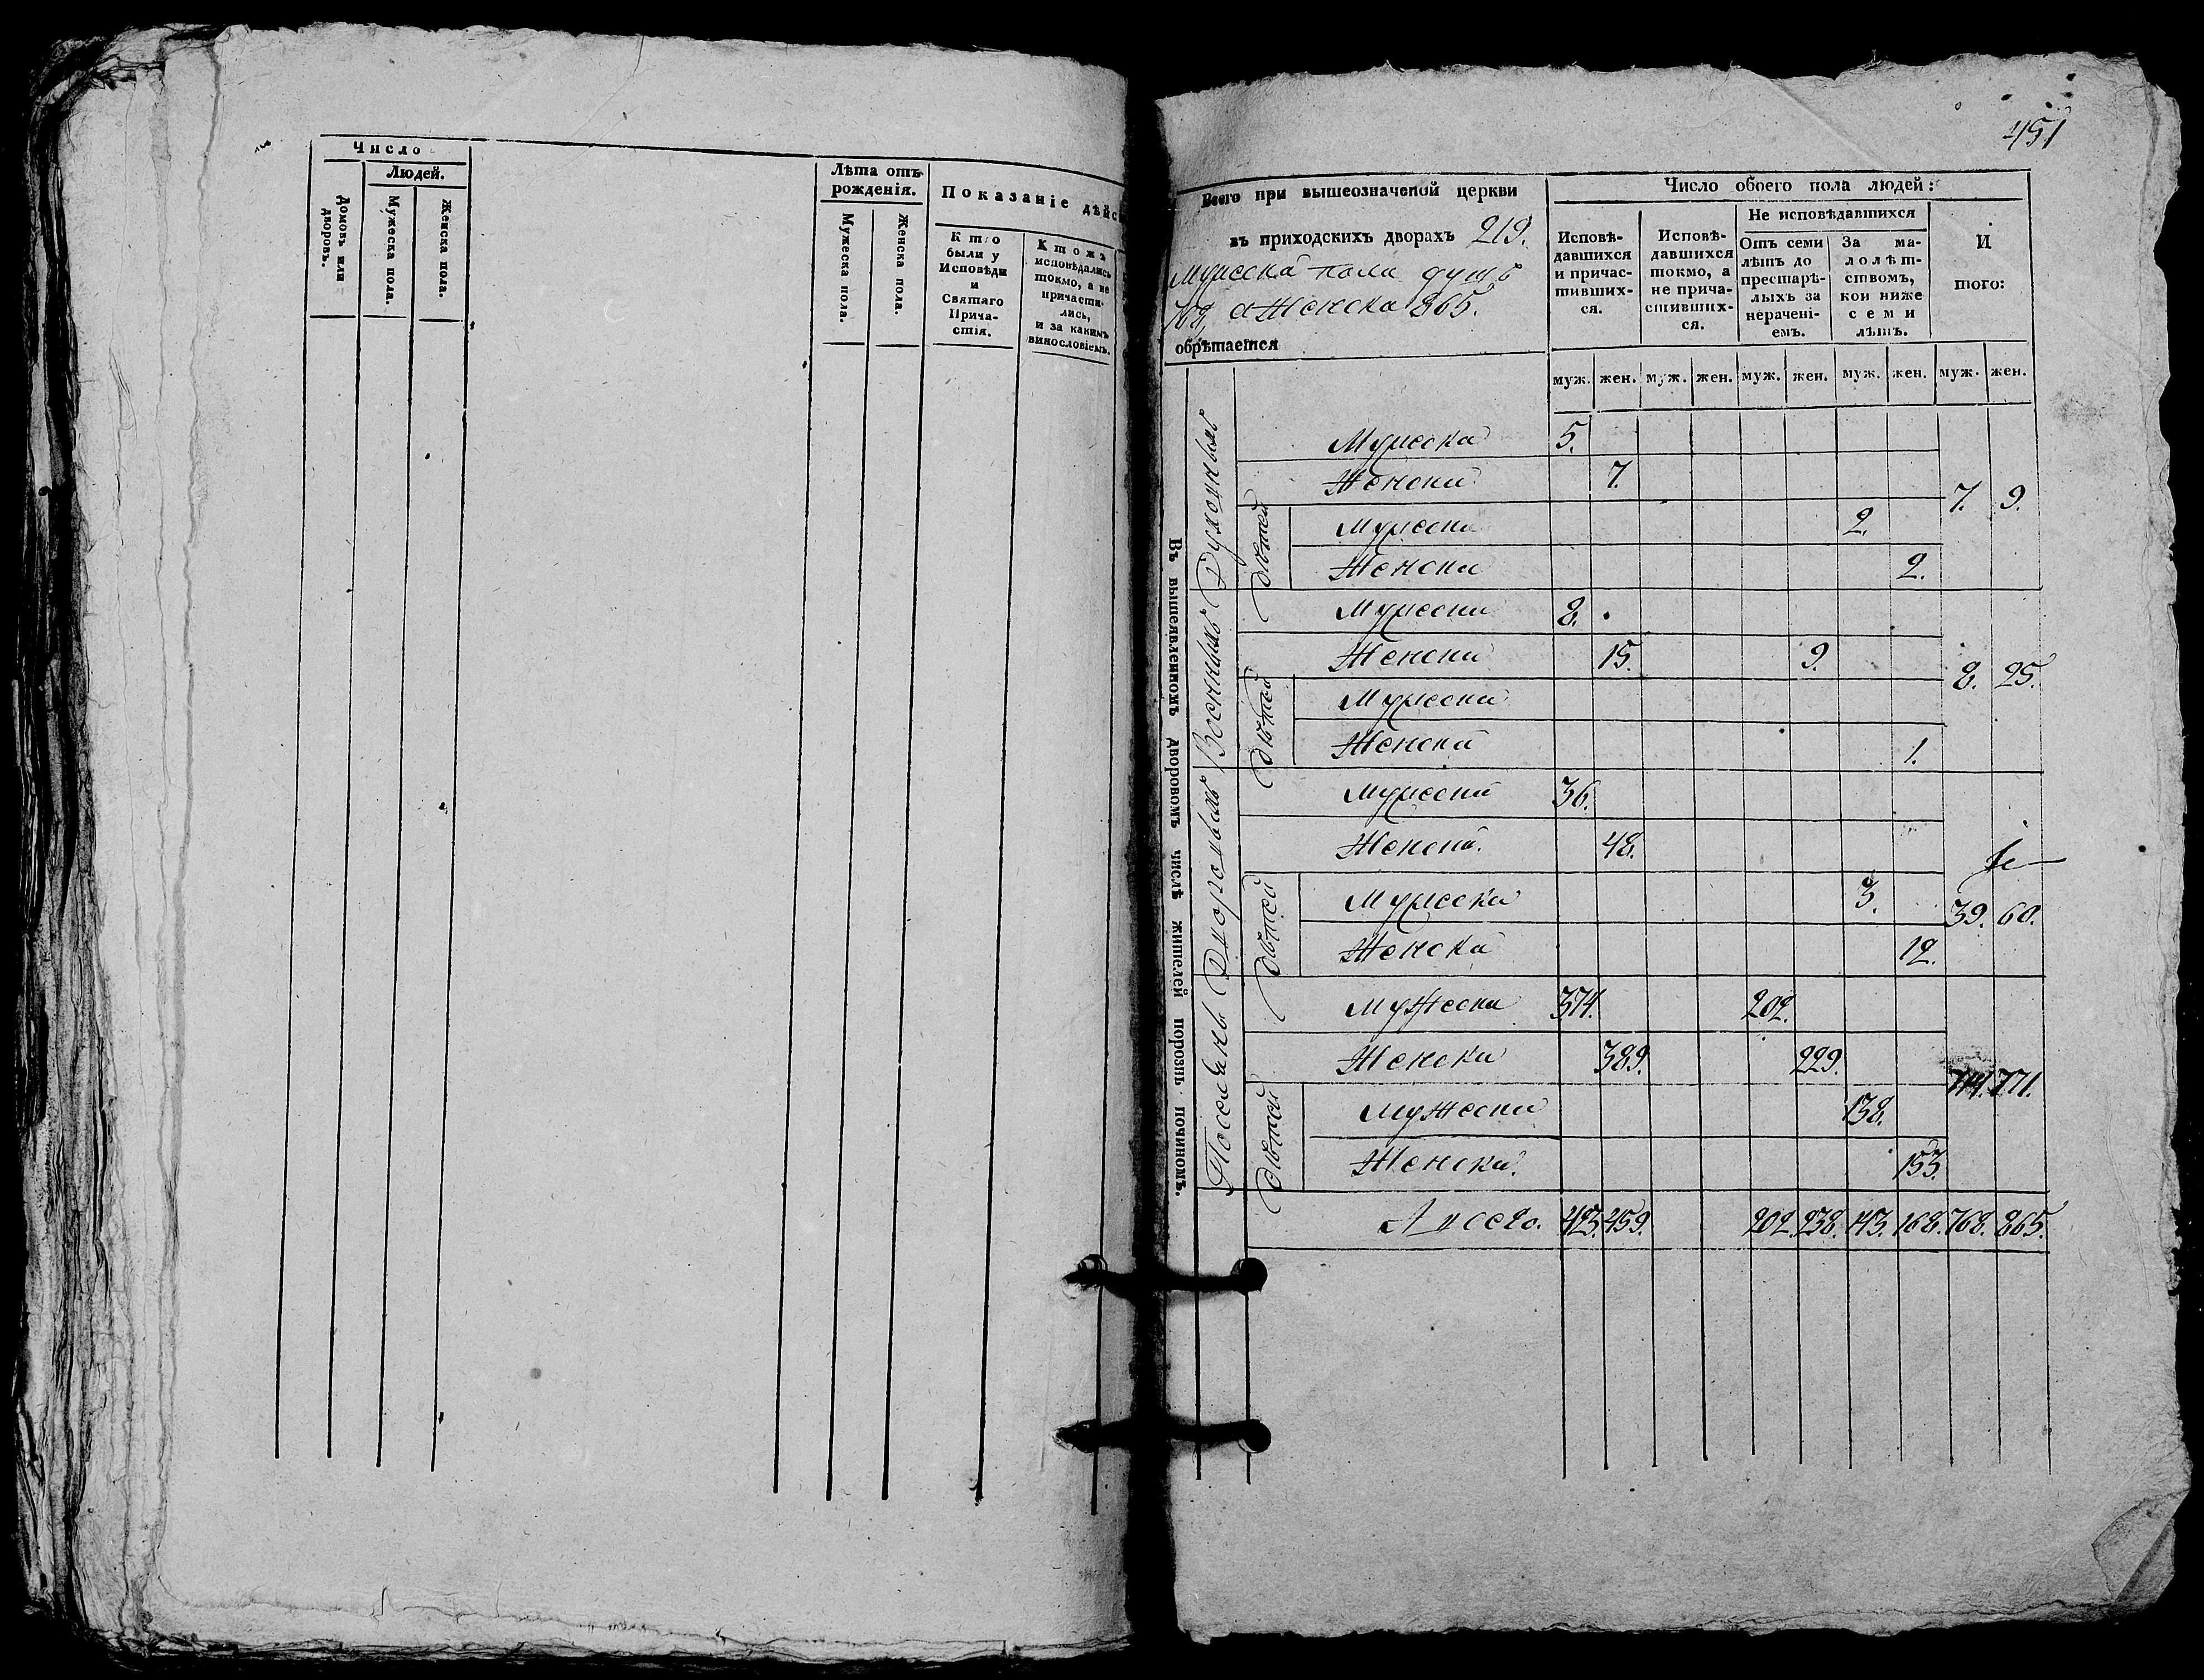 Число
Людей.
Домовъ или дворовъ.
Мужеска пола.
Женска пола.
Лѣта отъ
рожденія.
Мужеска пола.
Женска пола.
Показаніе дѣйс
Кто
были у
Исповѣди
и
Святаго
Прича-
стія.
Ктожъ
исповѣдались
токмо, а не
причасти-
лись,
и за какимъ
винословіемъ.
451
Всего при вышеозначеной церкви
въ приходскихъ дворахъ 219.
Мужеска пола душъ
768, а Женска 865.
обрѣтается
Число обоего пола людей:
Исповѣ-
давшихся
и причас-
тивших-
ся.
Исповѣ-
давшихся
токмо, а
не прича-
стивших-
ся.
Не исповѣдавшихся
Отъ семи
лѣтъ до
престарѣ-
лыхъ за
нерачені-
емъ.
За ма-
лолѣт-
ствомъ,
кои ниже
семи
лѣтъ.
И
того:
муж. жен. муж. жен. муж. жен. муж. жен. муж. жен.
Въ вышеявленномъ дворовомъ числѣ жителей порознь по чиномъ.
Духовныхъ
Мужеска 5.
Женска 7.
7. 9.
Дѣтей
Мужеска 2.
Женска 2.
Военныхъ
Мужеска 8.
Женска 15. 9.
8. 25.
Дѣтей
Мужеска
Женска 1.
Дворовыхъ
Мужеска 36.
Женска. 48.
Дѣтей
Мужеска 3.
39. 60.
Женска 12.
Поселянъ
Мужеска 374. 202.
Женска 389. 229.
714. 771.
Дѣтей
Мужеска 138.
Женска. 153.
А всего. 423. 459. 202. 238. 143. 168. 768. 865.